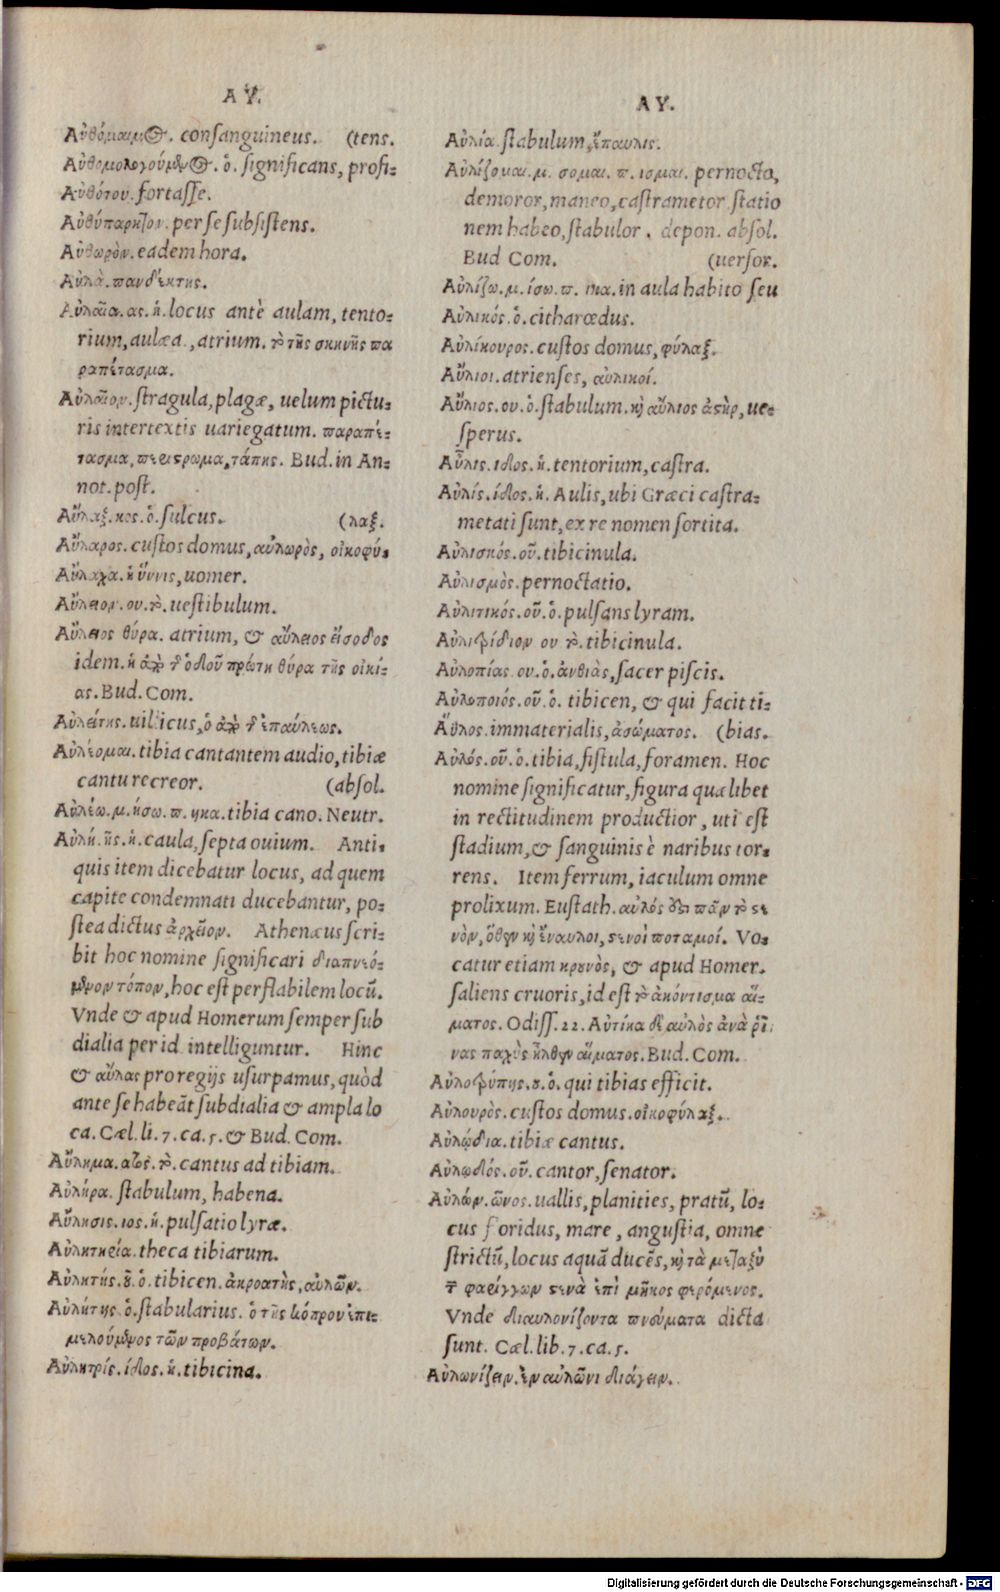 ΑΥ.
Αὐθόμαιμος. consanguineus. (tens.
Αὐθομολογούμενος. ὁ. significans, profi-
Αὐθότου. fortasse.
Αὐθύπαρκτον. per se subsistens.
Αὐθωρὸν. eadem hora.
Αὐλὰ. πανδέκτης.
Αὐλαῖα. ας. ἡ. locus antè aulam, tento-
rium, aulæa., atrium. τὸ τῆς σκηνῆς πα
ραπέτασμα.
Αὐλαῖον. stragula, plagæ, uelum pictu-
ris intertextis uariegatum. παραπέ-
τασμα, περίστρωμα, τάπης. Bud. in An-
not. post.
Αὖλαξ. κος. ὁ. sulcus. (λαξ.
Αὔλαρος. custos domus, αὐλωρὸς, οἰκοφύ-
Αὔλαχα. ἡ ὕννις, uomer.
Αὔλειον. ου. τὸ. uestibulum.
Αὔλειος θύρα. atrium, & αὔλειος εἴσοδος
idem. ἡ ἀπὸ τ ὁδοῦ πρώτη θύρα τῆς οἰκί-
ας. Bud. Com.
Αὐλείτης. uillicus, ὁ ἀπὸ τ ἐπαύλεως.
Αὐλέομαι. tibia cantantem audio, tibiæ
cantu recreor. (absol.
Αὐλέω. μ. ήσω. π. ηκα. tibia cano. Neutr.
Αὐλή. ῆς. ἡ. caula, septa ouium. Anti-
quis item dicebatur locus, ad quem
capite condemnati ducebantur, po-
stea dictus ἀρχεῖον. Athenæus scri-
bit hoc nomine significari διαπνεό-
μενον τόπον, hoc est perflabilem locũ.
Vnde & apud Homerum semper sub
dialia per id intelliguntur. Hinc
& αὔλας pro regijs usurpamus, quòd
ante se habeãt subdialia & ampla lo
ca. Cæl. li. 7. ca. 5. & Bud. Com.
Αὔλημα. ατος. τὸ. cantus ad tibiam.
Αὐλήρα. stabulum, habena.
Αὔλησις. ιος. ἡ. pulsatio lyræ.
Αὐλητηρία. theca tibiarum.
Αὐλητής. οῦ. ὁ. tibicen. ἀκροατὴς, αὐλῶν.
Αὐλήτης. ὁ. stabularius. ὁ τῆς κόπρου ἐπι-
μελούμενος τῶν προβάτων.
Αὐλητρίς. ίδος. ἡ. tibicina.
ΑΥ.
Αὐλία. stabulum, ἔπαυλις.
Αὐλίζομαι. μ. σομαι. π. ισμαι. pernocto,
demoror, maneo, castrametor statio
nem habeo, stabulor. depon. absol.
Bud Com. (uersor.
Αὐλίζω. μ. ίσω. π. ικα. in aula habito seu
Αὐλικός. ὁ. citharœdus.
Αὐλίκουρος. custos domus, φύλαξ.
Αὔλιοι. atrienses, αὐλικοί.
Αὔλιος. ου. ὁ. stabulum. καὶ αὔλιος ἀστὴρ, ue-
sperus.
Αὖλις. ιδος. ἡ. tentorium, castra.
Αὐλίς. ίδος. ἡ. Aulis, ubi Græci castra-
metati sunt, ex re nomen sortita.
Αὐλισκός. οῦ. tibicinula.
Αὐλισμὸς. pernoctatio.
Αὐλιτικός. οῦ. ὁ. pulsans lyram.
Αὐλιτρίδιον ου τὸ. tibicinula.
Αὐλοπίας ου. ὁ. ἀνθιὰς, sacer piscis.
Αὐλοποιός. οῦ. ὁ. tibicen, & qui facit ti-
Ἄϋλος. immaterialis, ἀσώματος. (bias.
Αὐλός. οῦ. ὁ. tibia, fistula, foramen. Hoc
nomine significatur, figura quælibet
in rectitudinem productior, uti est
stadium, & sanguinis è naribus tor-
rens. Item ferrum, iaculum omne
prolixum. Eustath. αὐλός ὅτι πᾶν τὸ στε
νὸν, ὅθεν καὶ ἔναυλοι, στενοὶ ποταμοί. Vo-
catur etiam κρουνὸς, & apud Homer.
saliens cruoris, id est τὸ ἀκόντισμα αἵ-
ματος. Odiss. 22. Αὐτίκα δ' αὐλὸς ἀνὰ ῥῖ
νας παχὺς ἦλθεν αἵματος. Bud. Com.
Αὐλοτρύπης. ου. ὁ. qui tibias efficit.
Αὐλουρὸς. custos domus. οἰκοφύλαξ.
Αὐλῴδια. tibiæ cantus.
Αὐλῳδιός. οῦ. cantor, senator.
Αὐλών. ῶνος. uallis, planities, pratũ, lo-
cus floridus, mare, angustia, omne
strictũ, locus aquã ducẽs, καὶ τὰ μεταξὺ
τ φαρίγγων στενὰ ἐπὶ μῆκος φερόμενος.
Vnde διαυλονίζοντα πνεύματα dicta
sunt. Cæl. lib. 7. ca. 5.
Αὐλωνίζειν. ἐν αὐλῶνι διάγειν.
Digitalisierung gefördert durch die Deutsche Forschungsgemeinschaft - DFG